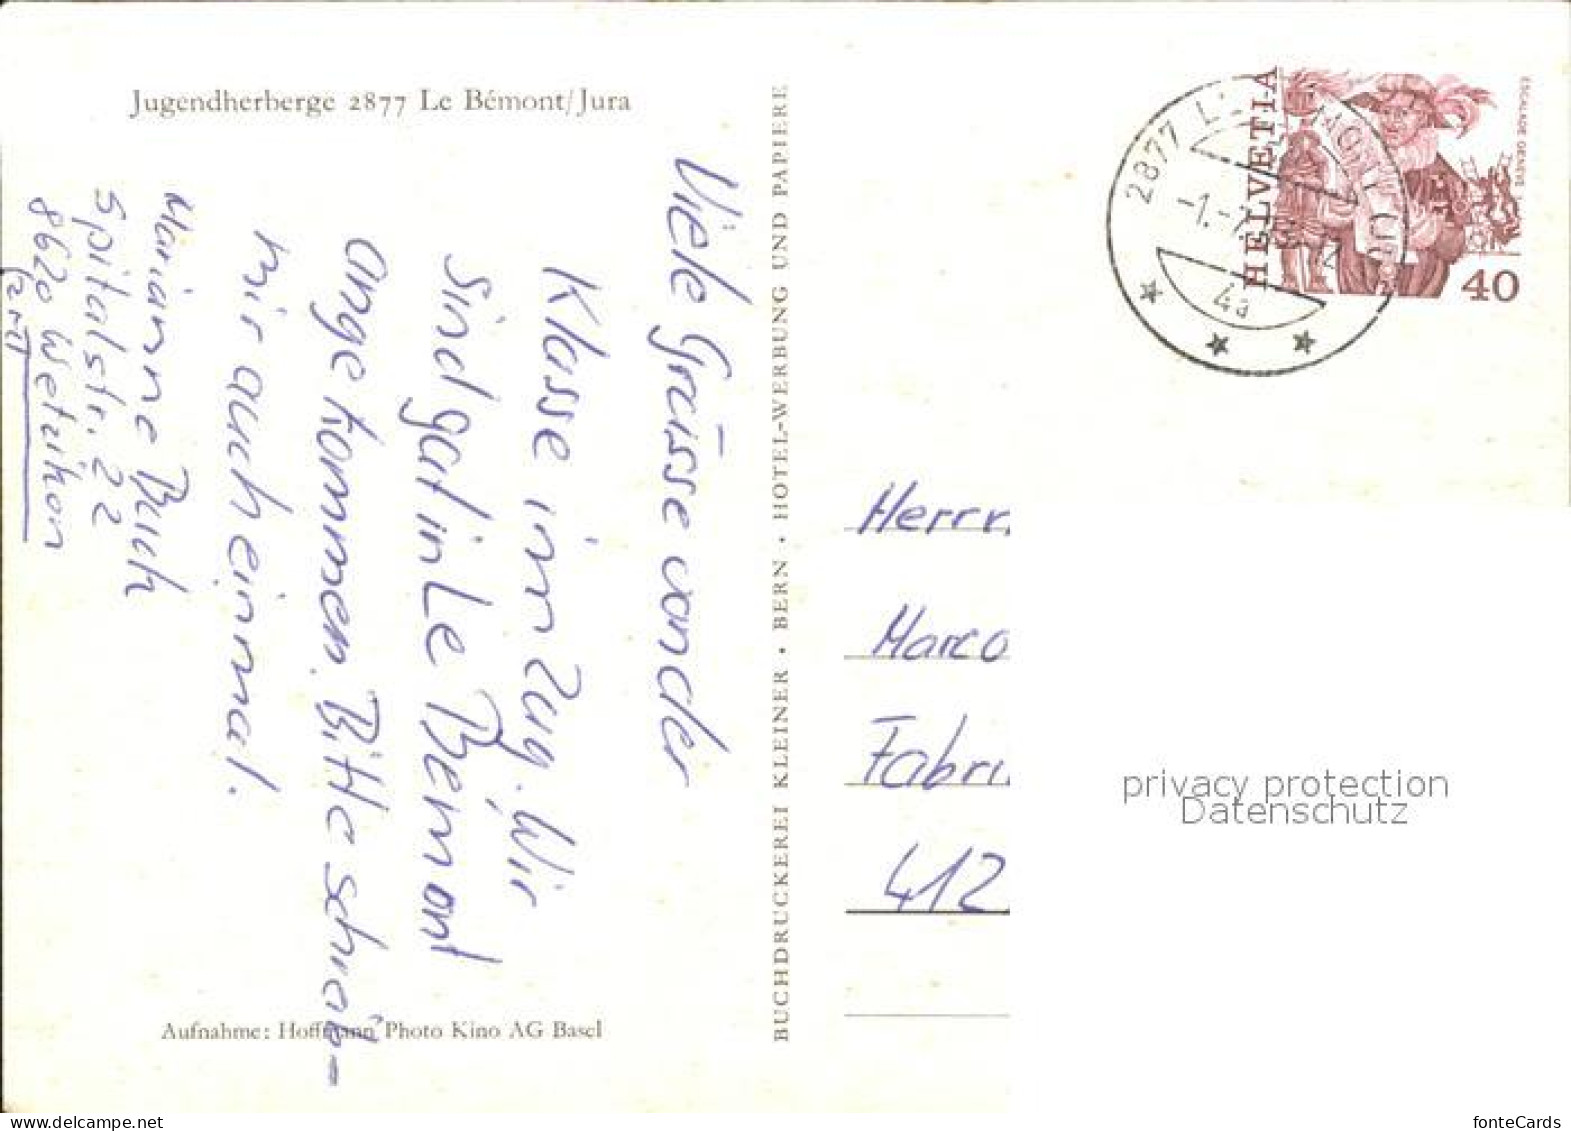 Jugendherberge 2877 Le Bémont/Jura
Viele Grüsse von der
Klasse im Zug. Wir
Sind gut in Le Bemont
angekommen. Bitte schreib-
mir auch einmal.
Marianne Buch
Spitalstr. 22
8620 Wetzikon
Aufnahme: Hoffmann Photo Kino AG Basel
BUCHDRUCKEREI KLEINER • BERN • HOTEL-WERBUNG UND PAPIERE
HELVETIA
ESCALADE GENÈVE
40
2877
-1.-7.
4a
Herrn
Marco
Fabri
412
privacy protection
Datenschutz
fonteCards